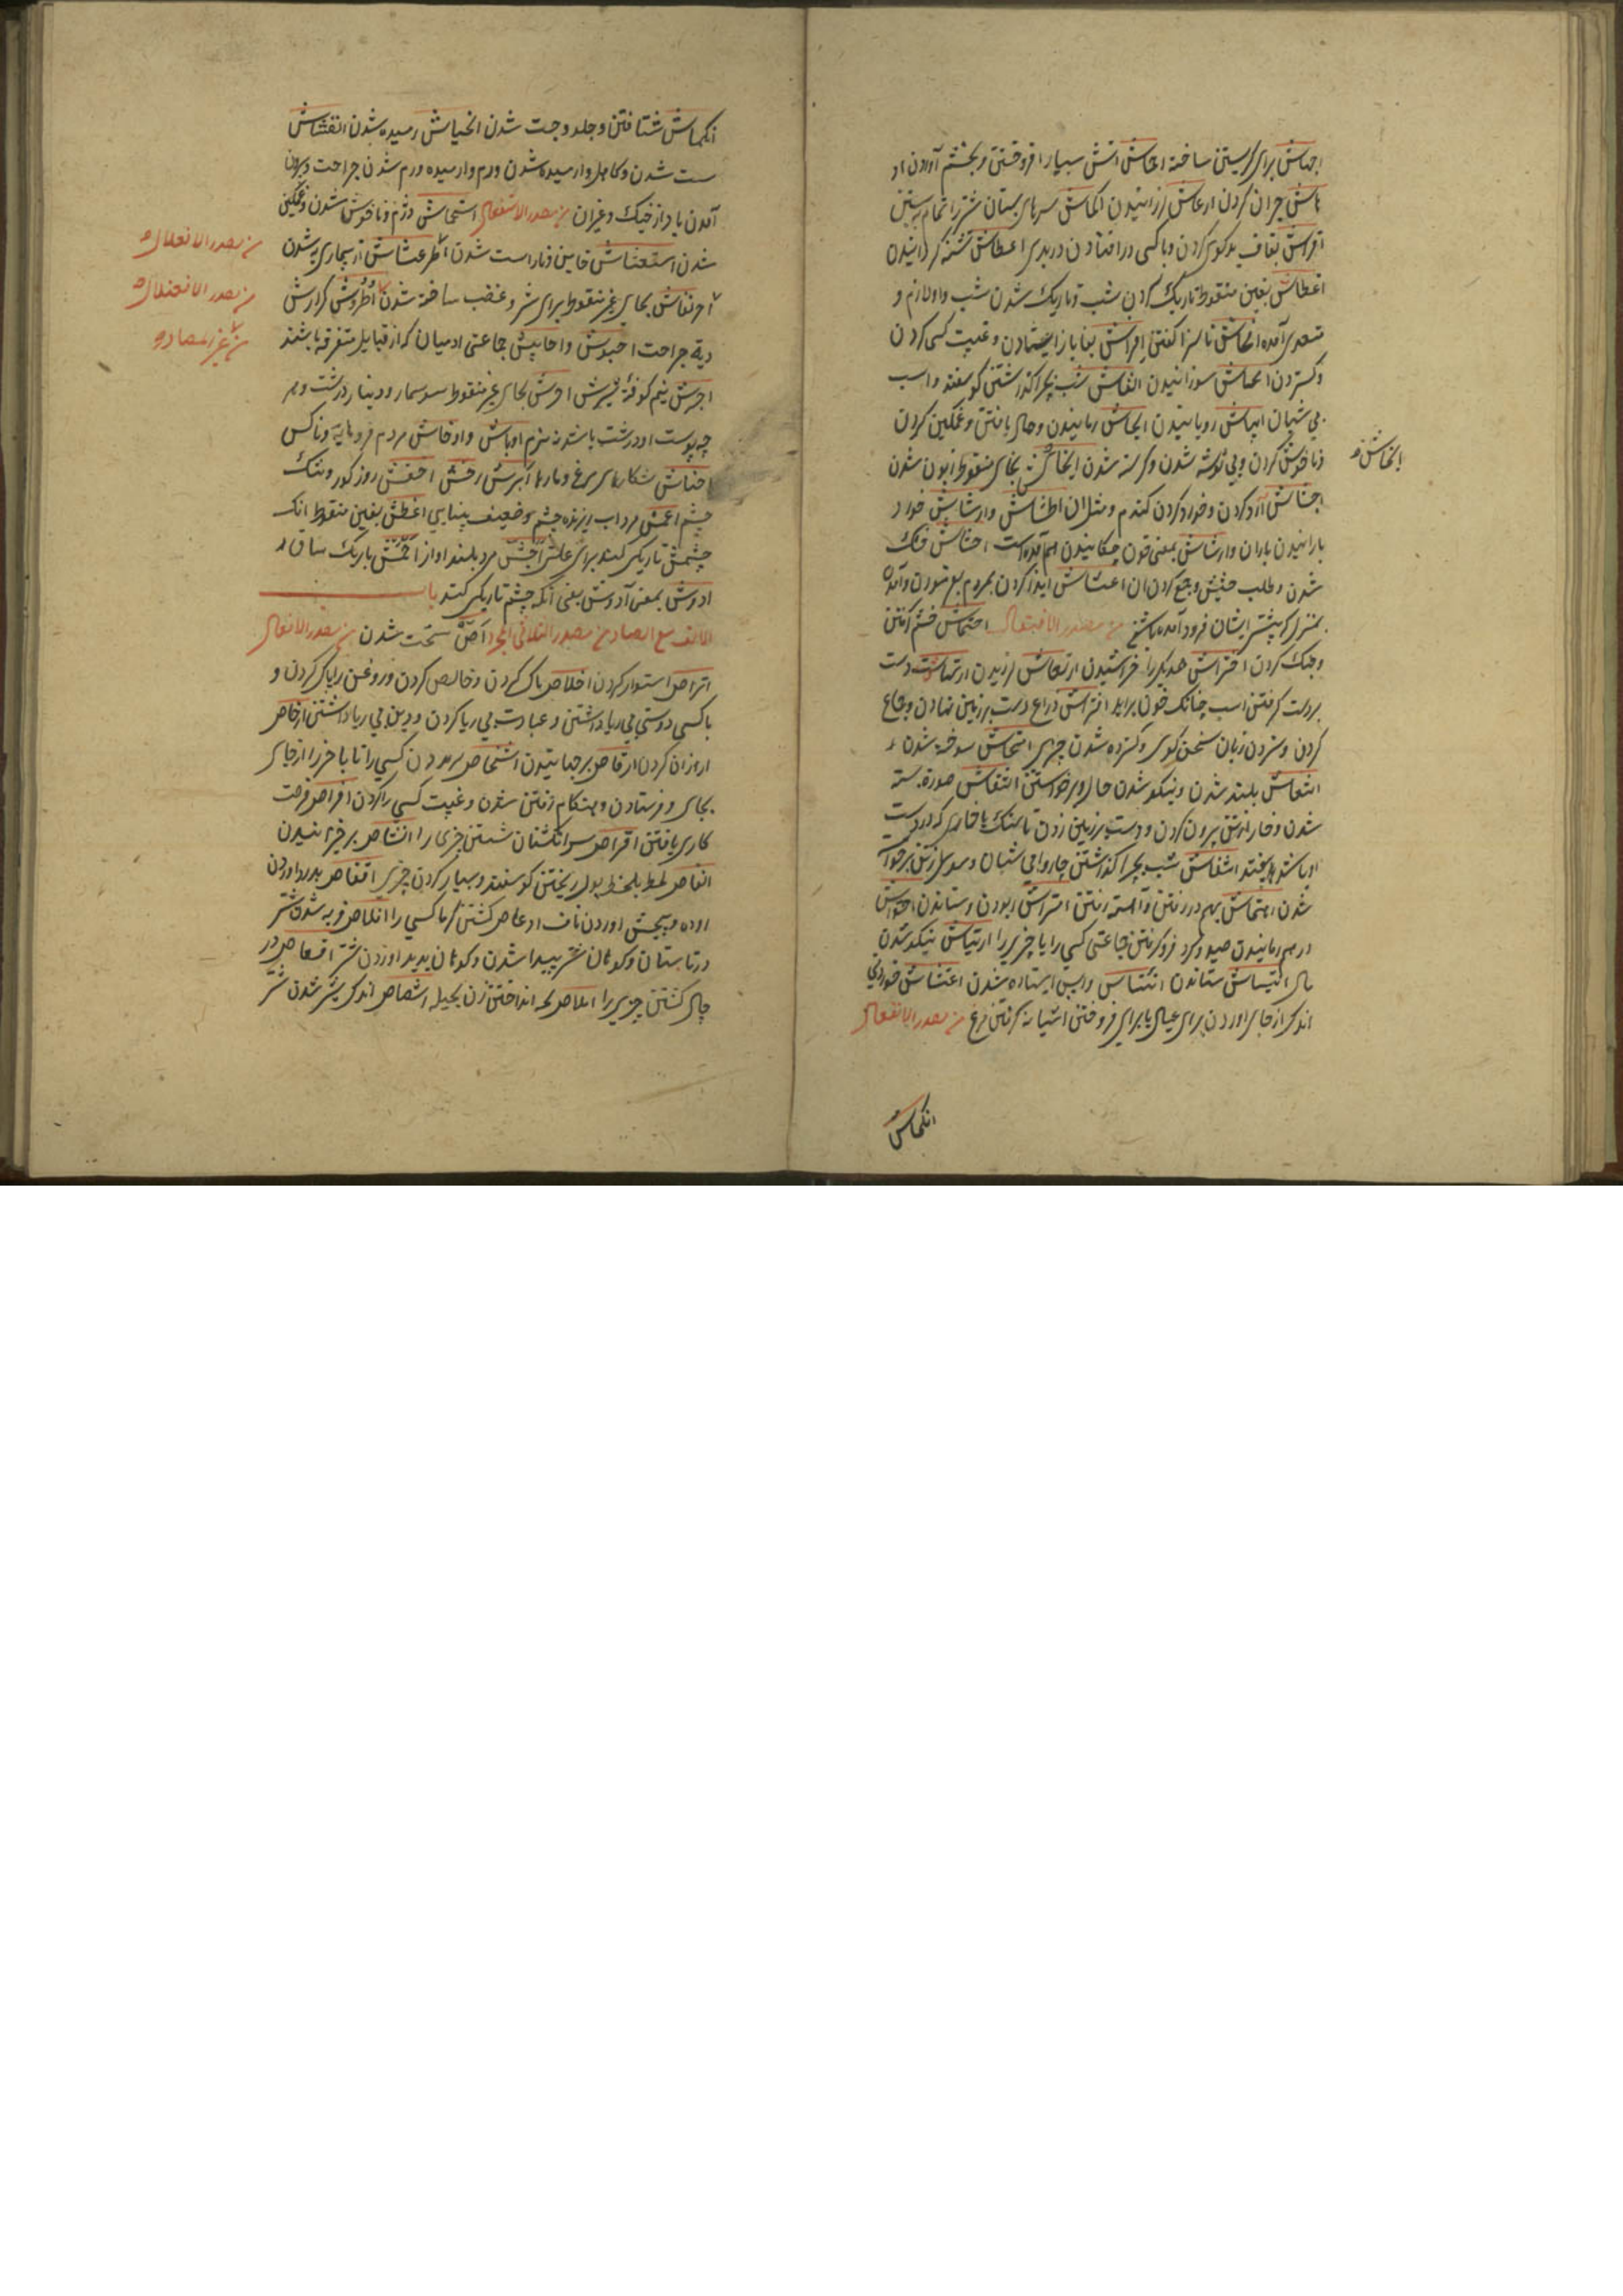 اجهاش برای گریستن ساخته احماش اتش بسیار افروختن و بخشم آوردن اد
هاش حیران کردن ارعاش لرزانیدن اکماش سرهای پستان شتر را تمام بستن
اقراش بقاف بدکوی کردن و با کسی در افتادن در بدی اعطاش تشنه کردانیدن
اغطاش بغین منقوط تاریک کردن شب و تاریک شدن شب و او لازم و
متعدی آمده افحاش ناسزا کفتن افراش بفا باز ایستادن و غیبت کسی کردن
و کستردن امحاش سوزانیدن انفاش شب بچرا کذاشتن کوسفند و اسب
بی شبان ایباش رویانیدن ایحاش رمانیدن و خالی یافتن و غمکین کردن
و ناخوش کردن و بی توشه شدن و کرسنه شدن ایخاش بخای منقوط زبون شدن
ایخاش
اجشاش آرد کردن و خورد کردن کندم و مثل ان اطشاش و ارشاش خورد
بارانیدن باران و ارشاش بمعنی خون چکانیدن هم آمده است احشاش خشک
شدن و طلب حشیش و جمع کردن ان
بمنزل که پیشتر ایشان فرود آمده باشند من مصدر الافتعال احتماش خشم کرفتن
و جنک کردن اختراش همدیکر را خراشیدن ارتعاش لرزیدن ارتهاش دست
بردست کرفتن اسب چنانک خون براید افتراش ذراع دست بر زمین نهادن و جماع
کردن و زدن زبان سخن کوی و کسترده شدن چیزی امتحاش سوخته شدن
انتعاش بلند شدن و نیکو شدن حال و برخواستن انتقاش صورة بسته
شدن و خار از تن بیرون کردن و دست بر زمین زدن تا سنک یا خاری که در دست
او باشد بیفتد انتفاش شب بچرا کذاشتن چاروا بی شبان
شدن اهتماش بهم در رفتن و آهسته رفتن امتراش ربودن و ستاندن احتواش
درهم رمانیدن صید و کرد فرو کرفتن جماعتی کسی را یا چیزی را ارتیاش نیکو شدن
مال
اندک از جای اوردن برای عیال یا برای فروختن اشیانه کرفتن مرغ من مصدر الانفعال
انکماش
انکماش شتافتن و جلد و چست شدن انحیاش رمیده شدن انفشاش
سست شدن و کاهل و ارمیده شدن ورم و ارمیده ورم شدن جراحت و بیرون
آمدن باد از خیک و غیر ان من مصدر الاستفعال استیحاش دژم و ناخوش شدن و غمکین
شدن استغشاش خاین و ناراست شدن اطرغشاش از بیماری به شدن
من مصدر الافعلال
احرنفاش بحای غیر منقوط برای شر و غضب ساخته شدن اطروش کر ارش
من مصدر الافعنلال
دیة جراحت احبوش و احابیش جماعتی ادمیان که از قبایل متفرقه باشند
من غیر المصادر
اجرش نیم کوفته احرش بحای غیر منقوط سوسمار و دینار درشت و هر
چه پوست او درشت باشد نه نرم اوباش و اوخاش مردم فرومایه و ناکس
احناش شکارهای مرغ و مارها ابرش رخش اخفش روز کور و تنک
چشم اعمش مرد اب ریزنده چشم و ضعیف بینایی اغطش بغین منقوط انک
چشمش تاریکی کند برای علتی اجش مرد بلند اواز احمش باریک ساق
ادوش بمعنی آدوش یعنی آنکه چشم تاریکی کند باب
الالف مع الصاد من مصدر الثلاثی المجرد اص سخت شدن من مصدر الافعال
اتراص استوار کردن اخلاص پاک کردن و خالص کردن و روغن را پاک کردن و
با کسی دوستی بی ریا داشتن و عبادت بی ریا کردن و دین بی ریا داشتن ارخاص
ارزان کردن ارقاص برجهانیدن اشخاص
بجای و فرستادن و هنکام رفتن شدن و غیبت کسی را کردن افراص فرصت
کاری یافتن اقراص سر انکشتان شستن چیزی را انشاص برخیزانیدن
انفاص لحظ بلحظ بول ریختن کوسفند و بسیار کردن چیزی
اوردن ناف ادعاص کشتن کرما کسی را اقلاص فربه شدن شتر
در تابستان و کوهان شتر پیدا شدن و کوهان پدید اوردن شتر اقعاص در
جای کشتن چیزی را املاص بچه انداختن زن بحیله اشصاص اندک شیر شدن شتر